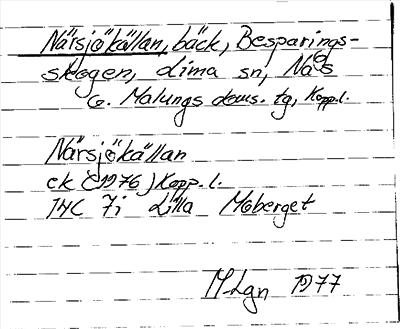 Närsjökällan, bäck, Besparings-
skogen, Lima sn, Nås
o. Malungs doms. tg, Kopp.l.
Närsjökällan
ek (1976) Kopp.l.
14C 7i Lilla Moberget
MLgn 1977